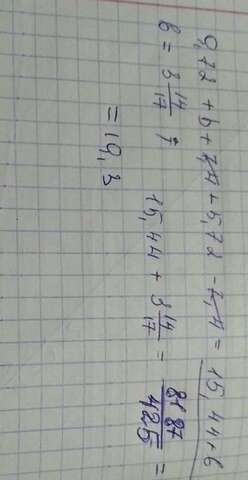 9,72 + b + 7,4 + 5,72 - 7,4 = 15,44 + b
b = 3 14/17 ; 15,44 + 3 14/17 = 8187/425 =
= 19,3